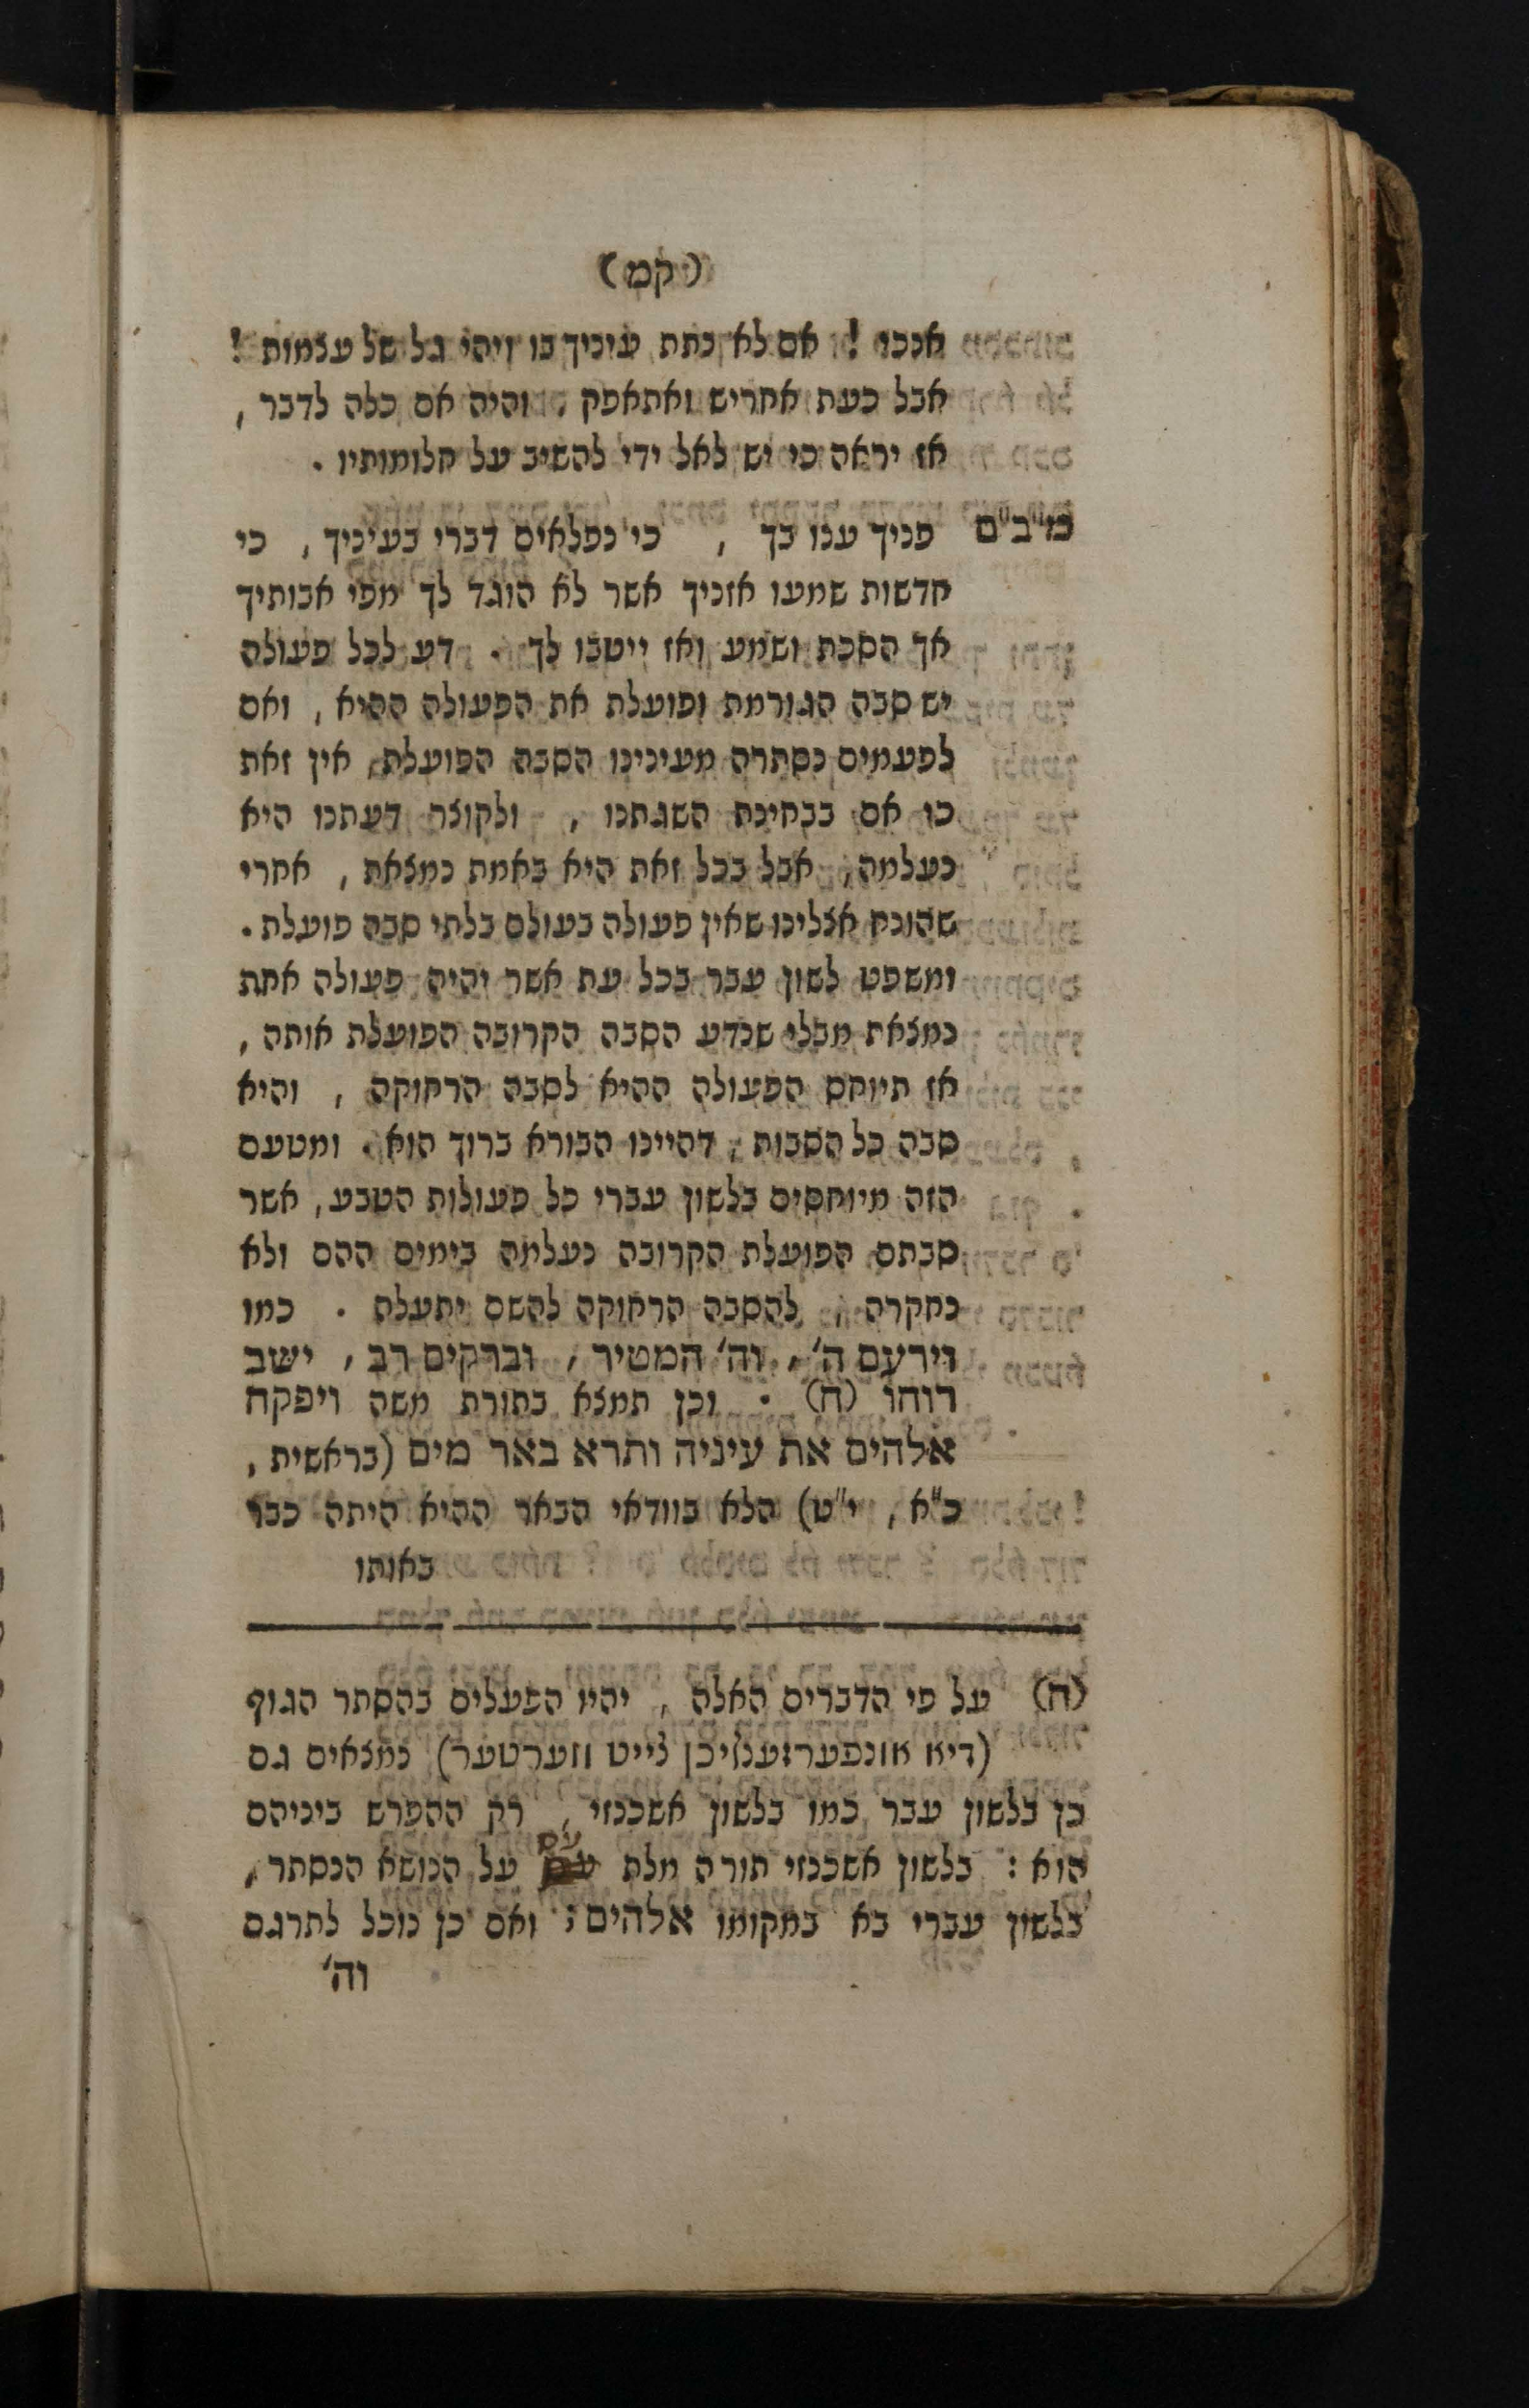 (קמ)
אנכו ! אם לא נתת עיניך בו ויהי גל של עצמות !
אבל כעת אחריש ואתאפק , והיה אם כלה לדבר ,
אז יראה כי יש לאל ידי להשיב על חלומותיו .
מ"ב"ם פניך ענו בך , כי נפלאים דברי בעיניך , כי
חדשות שמעו אזניך אשר לא הוגד לך מפי אבותיך
אך הסכת ושמע ואז ייטבו לך . דע לכל פעולה
יש סבה הגורמת ופועלת את הפעולה ההיא , ואם
לפעמים נסתרה מעינינו הסבה הפועלת, אין זאת
כו אם בבחינת השגתנו , ולקוצר דעתנו היא
נעלמה, אבל בכל זאת היא באמת נמצאת , אחרי
שהוכח אצלינו שאין פעולה בעולם בלתי סבה פועלת .
ומשפט לשון עבר בכל עת אשר יהיה פעולה אחת
נמצאת מבלי שנדע הסבה הקרובה הפועלת אותה ,
אז תיוחס הפעולה ההיא לסבה הרחוקה , והיא
סבה כל הסבות , דהיינו הבורא ברוך הוא . ומטעם
הזה מיוחסים בלשון עברי כל פעולות הטבע , אשר
סבתם הפועלת הקרובה נעלמה בימים ההם ולא
נחקרה , להסבה הרחוקה להשם יתעלה . כמו
וירעם ה' , וה' המטיר , וברקים רב , ישב
רוחו (ח) . וכן תמצא בתורת משה ויפקח
אלהים את עיניה ותרא באר מים (בראשית ,
כ"א , י"ט) הלא בוודאי הבאר ההיא היתה כבר
באותו
(ח) על פי הדברים האלה , יהיו הפעלים בהסתר הגוף
(דיא אונפערזענליכן צייט ווערטער) נמצאים גם
כן בלשון עבר כמו בלשון אשכנזי , רק ההפרש ביניהם
הוא : בלשון אשכנזי תורה מלת עס על הנושא הנסתר ,
בלשון עברי בא במקומו אלהים ; ואם כן נוכל לתרגם
וה'